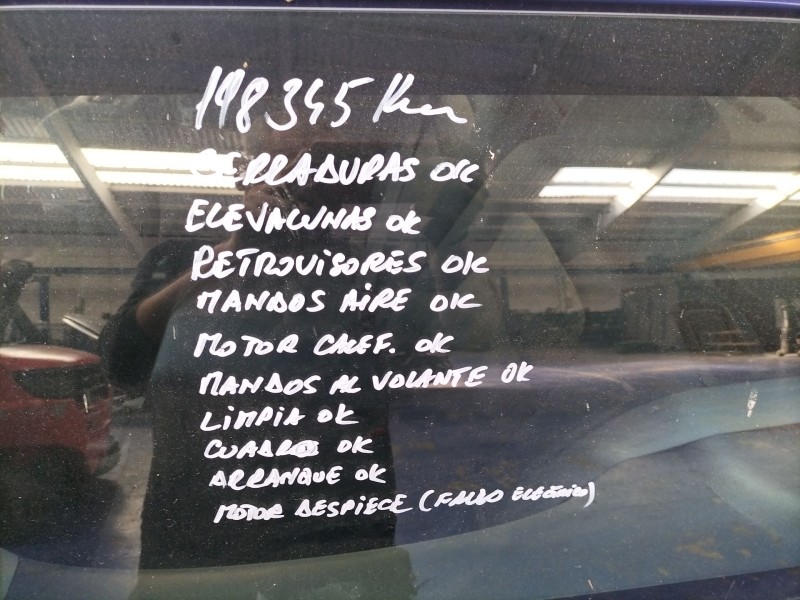 198345 Km
CERRADURAS OK
ELEVALUNAS OK
RETROVISORES OK
MANDOS AIRE OK
MOTOR CALEF. OK
MANDOS AL VOLANTE OK
LIMPIA OK
CUADRO OK
ARRANQUE OK
MOTOR DESPIECE (FALLO ELECTRICO)